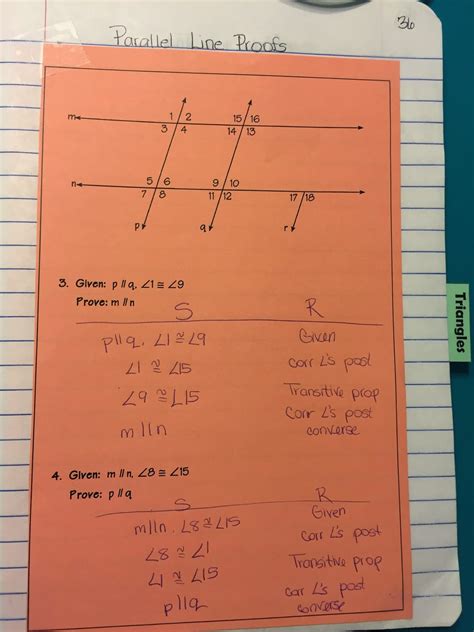 36
Parallel Line Proofs
1 2 15 16
m
3 4 14 13
5 6 9 10
n
7 8 11 12 17 18
p q r
3. Given: p // q, ∠1 ≅ ∠9
Prove: m // n
S R
p//q, ∠1 ≅ ∠9 Given
∠1 ≅ ∠15 corr ∠'s post
∠9 ≅ ∠15 Transitive prop
m//n Corr ∠'s post converse
4. Given: m // n, ∠8 ≅ ∠15
Prove: p // q
S R
m//n, ∠8 ≅ ∠15 Given
∠8 ≅ ∠1 corr ∠'s post
∠1 ≅ ∠15 Transitive prop
p//q corr ∠'s post converse
Triangles